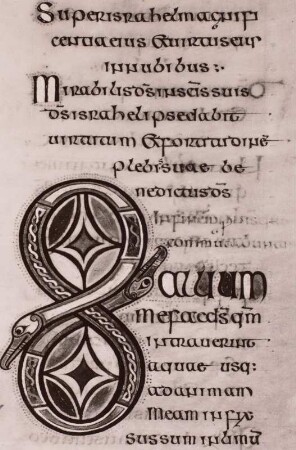 Super israhel magnifi
centia eius & uirtus eius
in nubibus:
Mirabilis ds in scis suis
ds israhel ipse dabit
uirtutem & fortitudinē
plebis uae be
nedictus ds
Saluum
me fac ds qm
intrauerunt
aquae usq:
ad animam
meam infix
sus sum in limū